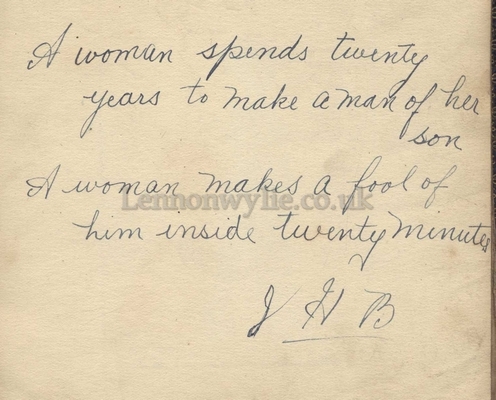 A woman spends twenty
years to make a man of her
son
A woman makes a fool of
Lennonwylie.co.uk
him inside twenty minutes
J H B